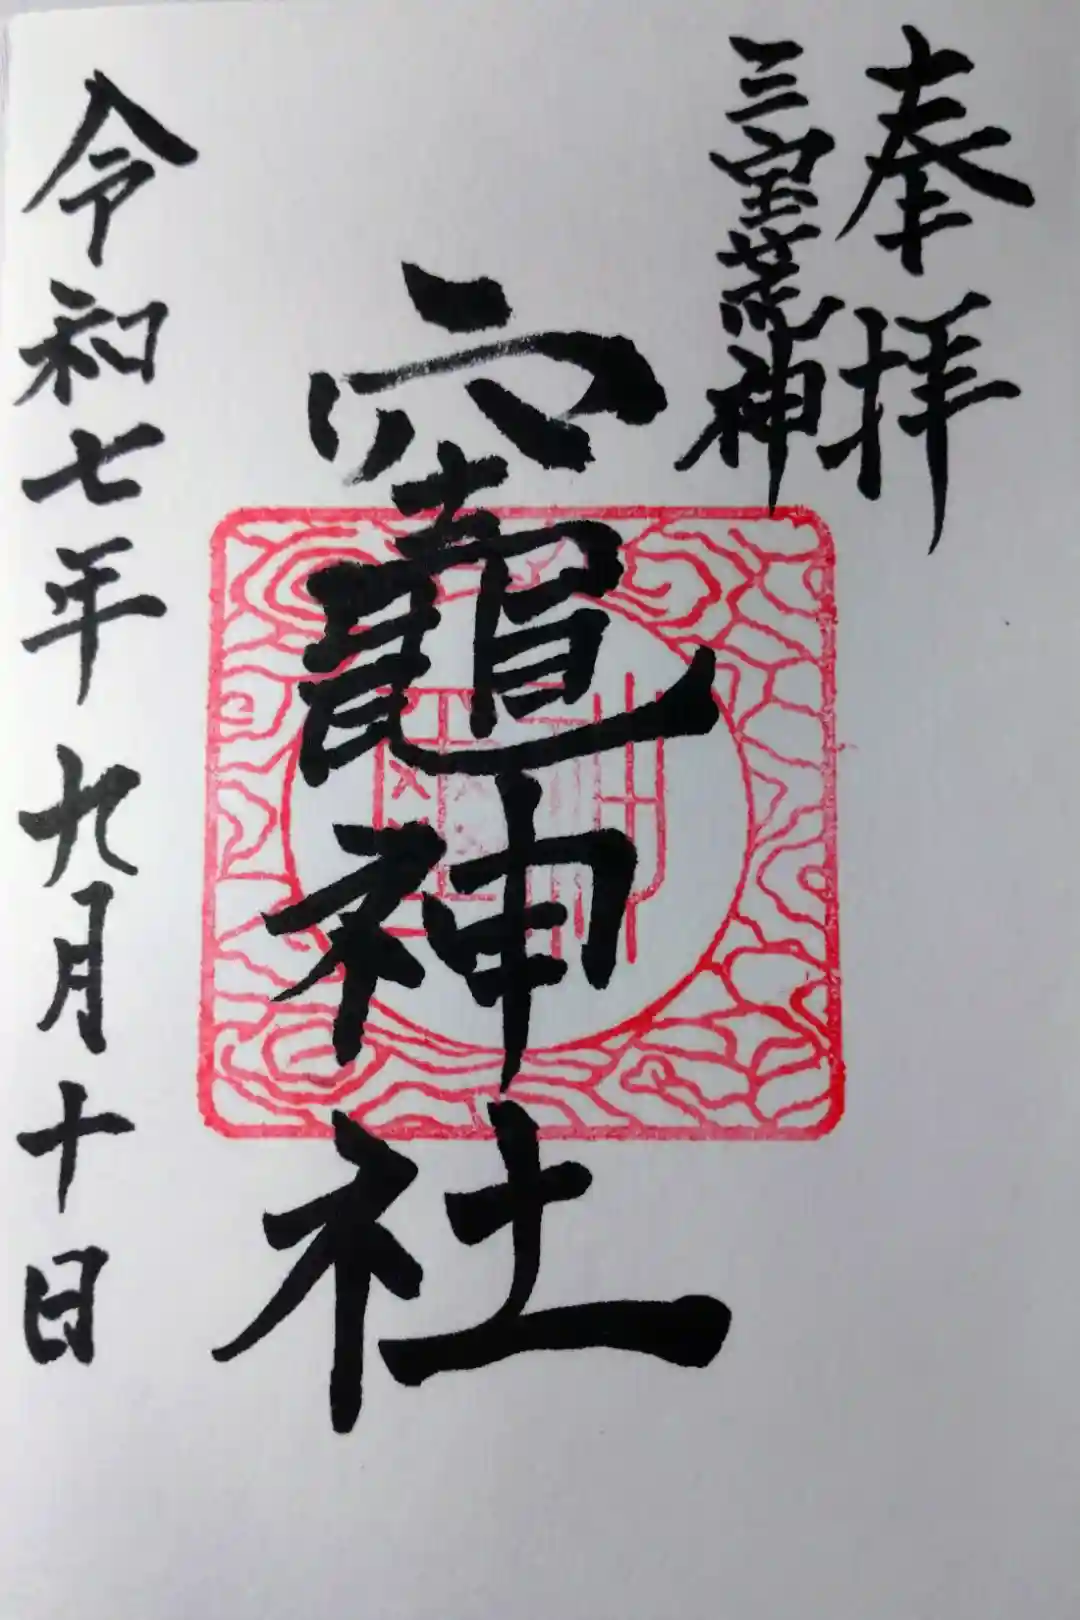 奉拝
三宝荒神
竈神社
令和七年九月十日